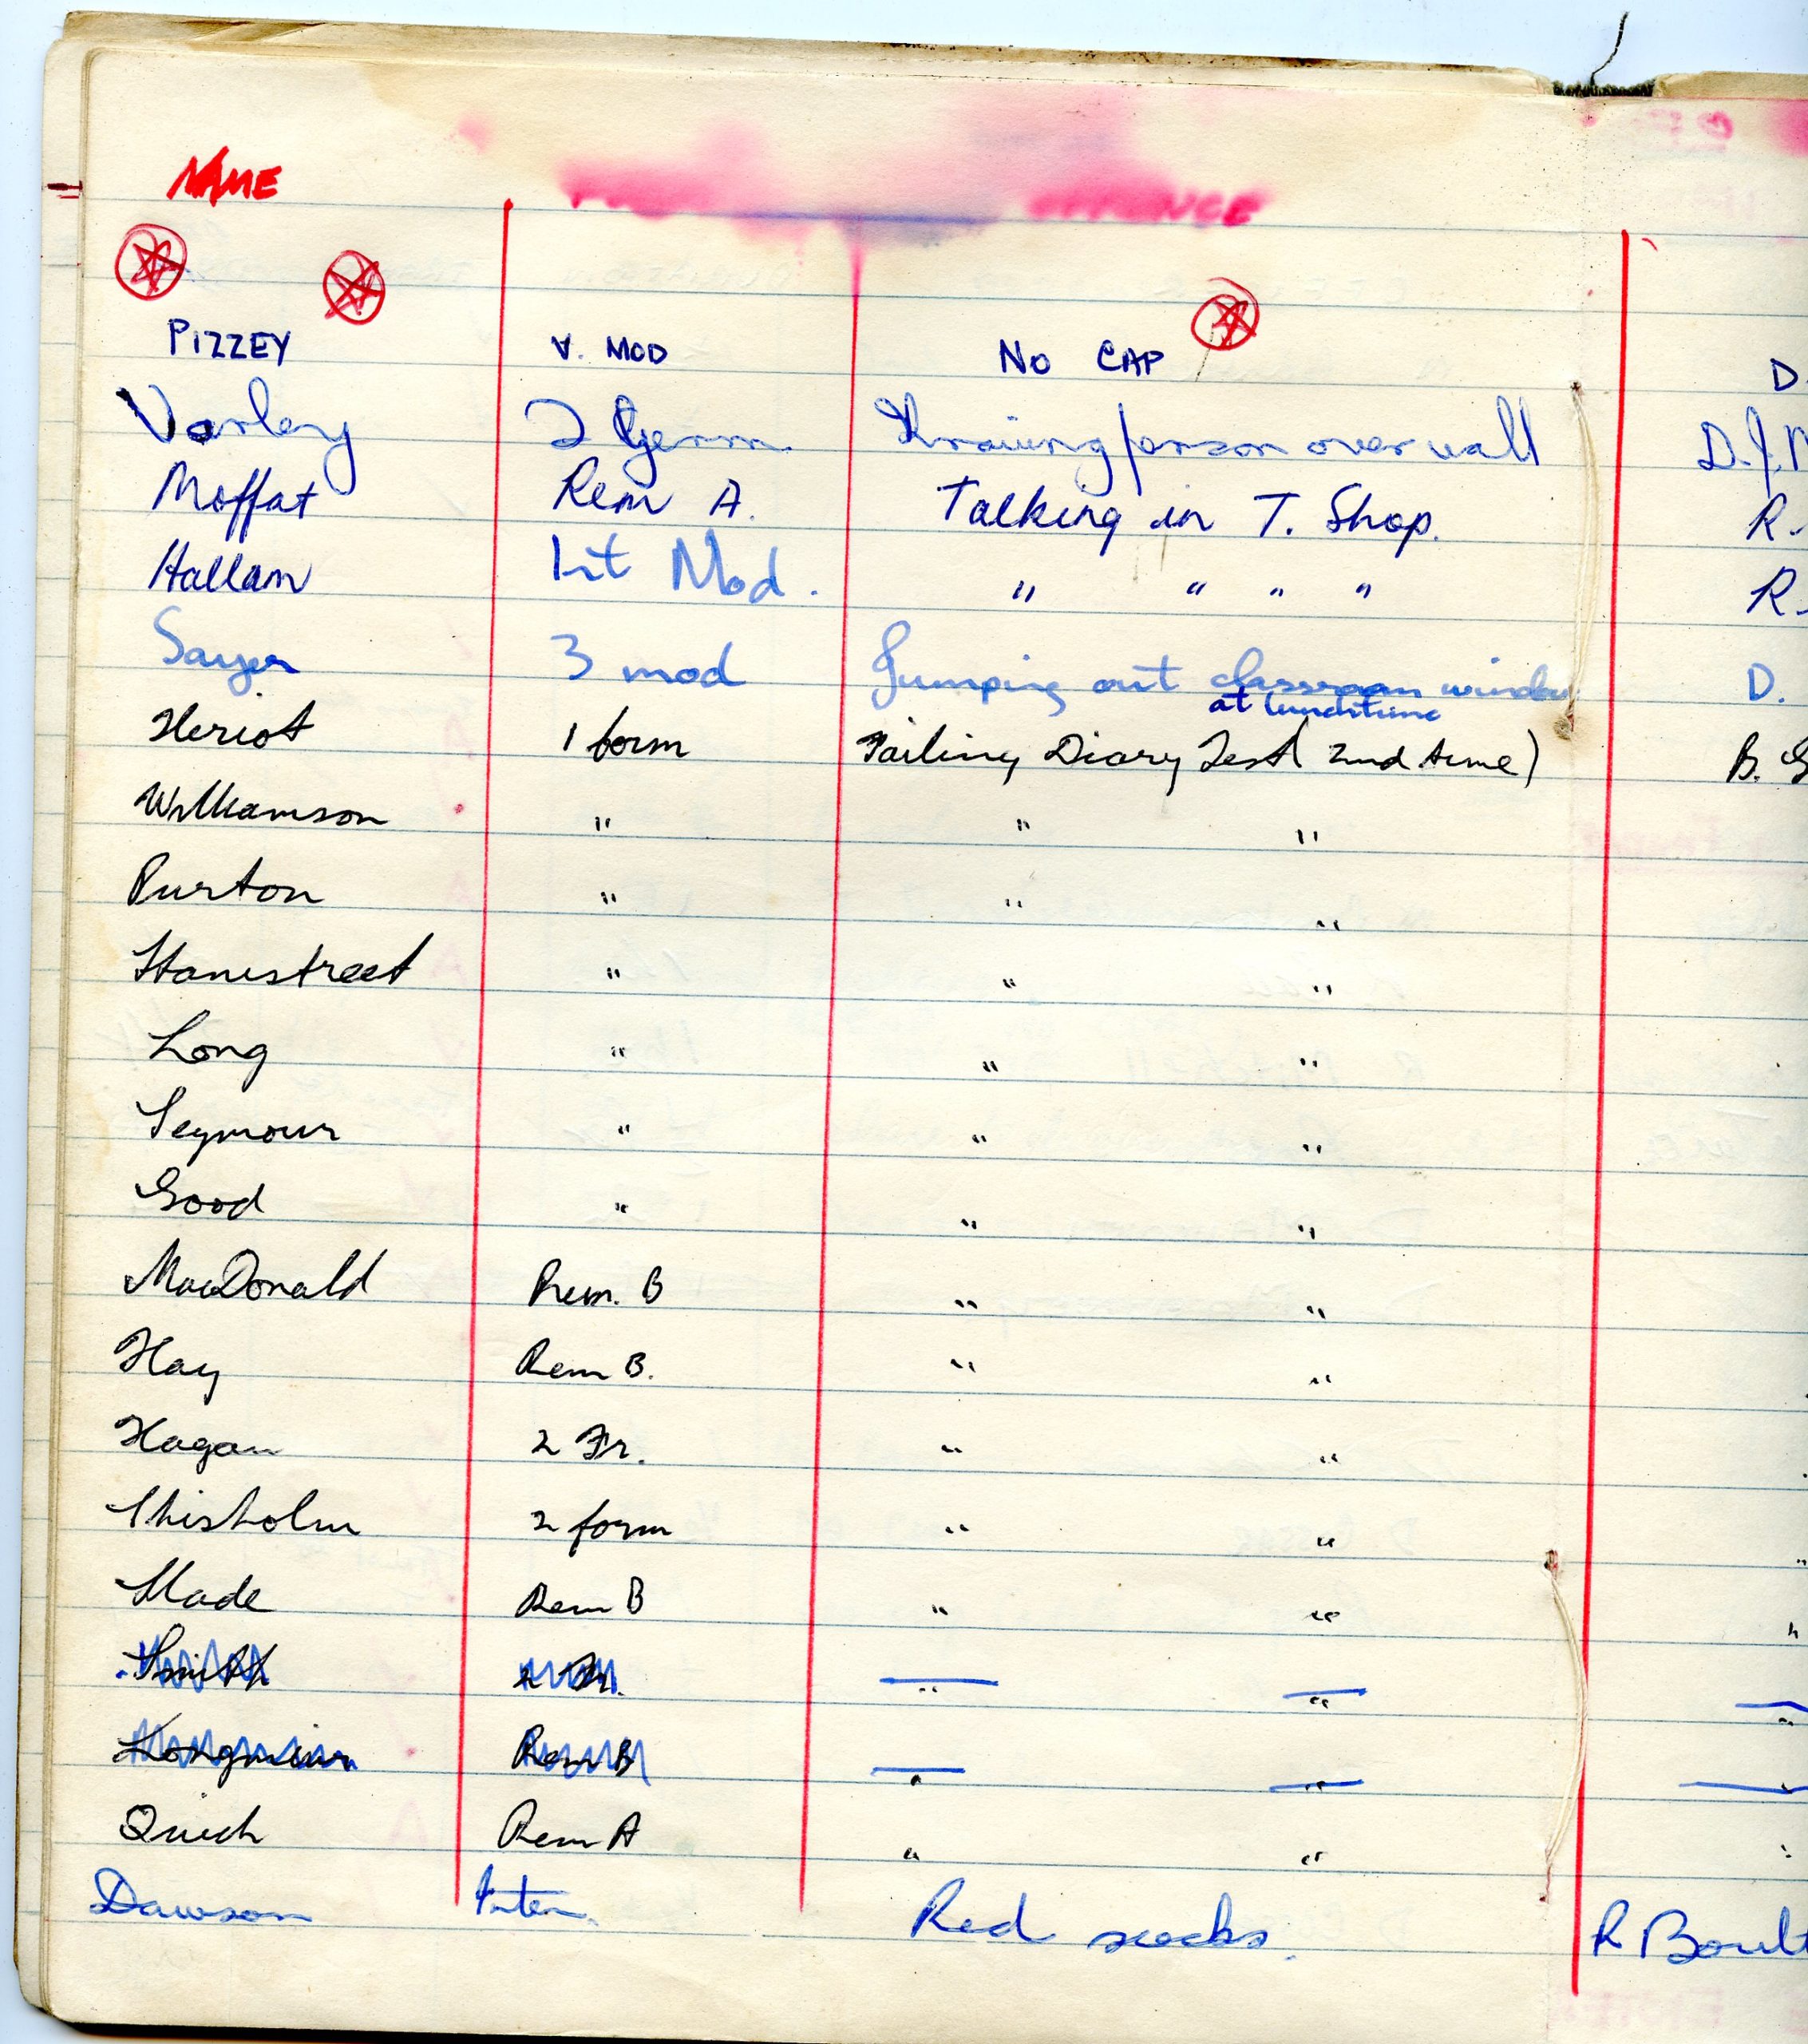 NAME OFFENCE
PIZZEY V. MOD NO CAP D.
Varley 2 Germ. Throwing person over wall D.J.
Moffat Rem A. Talking in T. Shop. R.
Hallam Lit Mod. " " " " R.
Sayer 3 mod Jumping out classroom window D.
at lunchtime
Heriot 1 form Failing Diary Test (2nd time) B.
Williamson " " "
Purton " " "
Hanestreet " " "
Long " " "
Seymour " " "
Good " " "
MacDonald Rem. B " "
Hay Rem B. " "
Hagan 2 Fr. " "
Chisholm 2 form " " "
Slade Rem B " " "
Smith 2 Fr. " " "
Longmuir Rem B " " "
Quich Rem A " " "
Dawson Inter. Red socks. R Boult